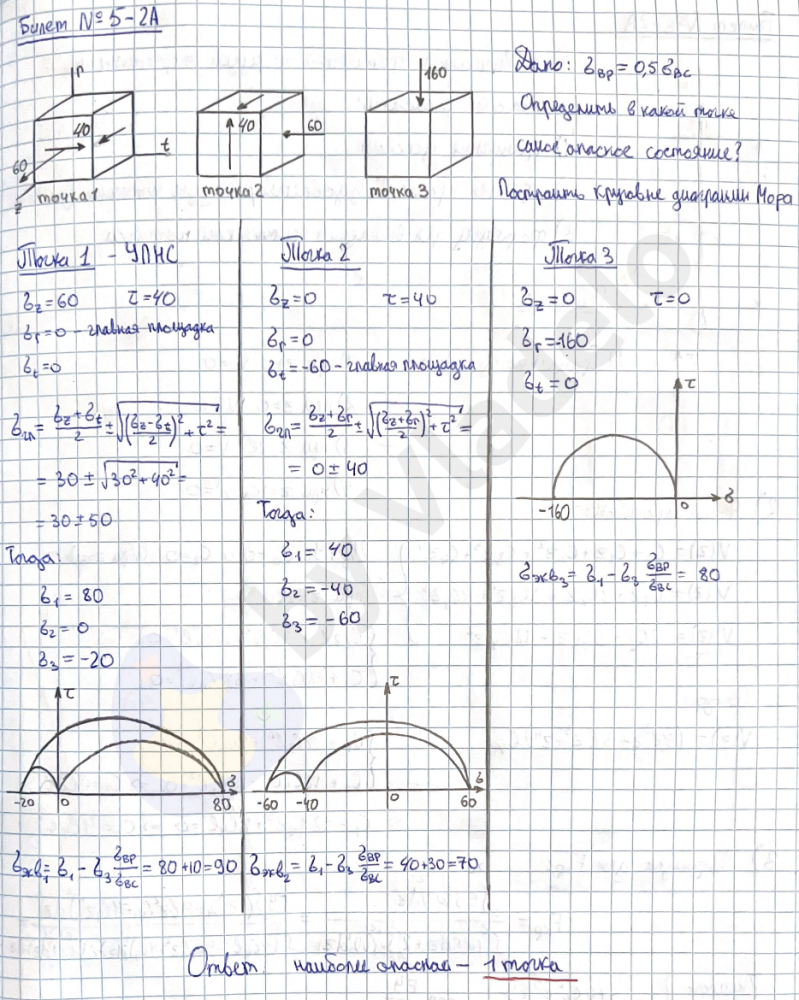 Билет № 5-2А
r
40
60
t
z
точка 1
40
60
точка 2
160
точка 3
Дано: σвр = 0,5 σвс
Определить в какой точке
самое опасное состояние?
Построить круговые диаграммы Мора
Точка 1 - УПНС
σz = 60 τ = 40
σr = 0 - главная площадка
σt = 0
σгл = (σz + σt)/2 ± √(((σz - σt)/2)² + τ²) =
= 30 ± √(30² + 40²) =
= 30 ± 50
Тогда:
σ1 = 80
σ2 = 0
σ3 = -20
τ
σ
-20 0 80
σэкв1 = σ1 - σ3 σвр/σвс = 80 + 10 = 90
Точка 2
σz = 0 τ = 40
σr = 0
σt = -60 - главная площадка
σгл = (σz + σr)/2 ± √(((σz + σr)/2)² + τ²) =
= 0 ± 40
Тогда:
σ1 = 40
σ2 = -40
σ3 = -60
τ
σ
-60 -40 0 60
σэкв2 = σ1 - σ3 σвр/σвс = 40 + 30 = 70
Точка 3
σz = 0 τ = 0
σr = -160
σt = 0
τ
σ
-160 0
σэкв3 = σ1 - σ3 σвр/σвс = 80
Ответ наиболе опасная - 1 точка
by Vladelo